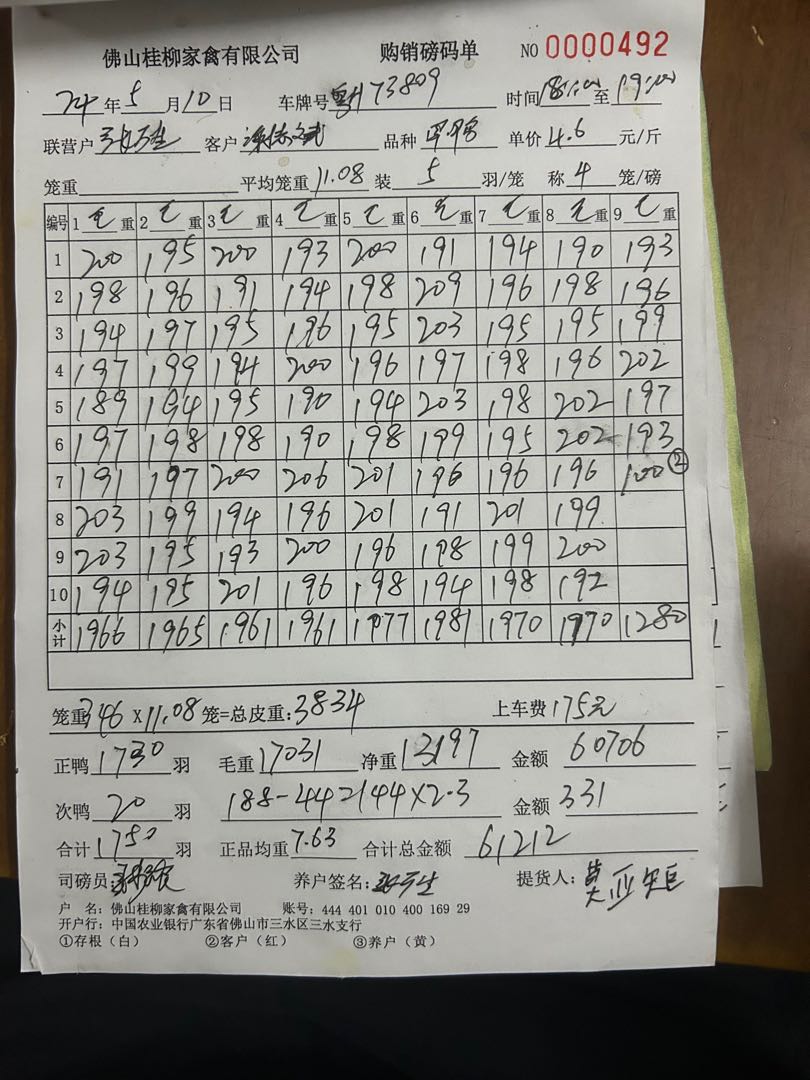 佛山桂柳家禽有限公司 购销磅码单 NO 0000492
24年5月10日 车牌号 73809 时间18:00至19:00
联营户 客户 品种 单价4.6元/斤
笼重 平均笼重11.08 装5羽/笼 称4笼/磅
编号 1毛重 2毛重 3毛重 4毛重 5毛重 6毛重 7毛重 8毛重 9毛重
1 200 195 200 193 200 191 194 190 193
2 198 196 191 194 198 209 196 198 196
3 194 197 195 196 195 203 195 195 199
4 197 199 194 200 196 197 198 196 202
5 189 194 195 190 194 203 198 202 197
6 197 198 198 190 198 199 195 202 193
7 191 197 200 206 201 196 196 196 100②
8 203 199 194 196 201 191 201 199
9 203 195 193 200 196 198 199 200
10 194 195 201 196 198 194 198 192
小计 1966 1965 1961 1961 1977 1981 1970 1970 1280
笼重346×11.08笼=总皮重:3834 上车费175元
正鸭1730羽 毛重17031 净重13197 金额60706
次鸭20羽 188-44=144×2.3 金额331
合计1750羽 正品均重7.63 合计总金额61212
司磅员: 养户签名: 提货人:
户 名:佛山桂柳家禽有限公司 账号:444 401 010 400 169 29
开户行:中国农业银行广东省佛山市三水区三水支行
①存根(白) ②客户(红) ③养户(黄)